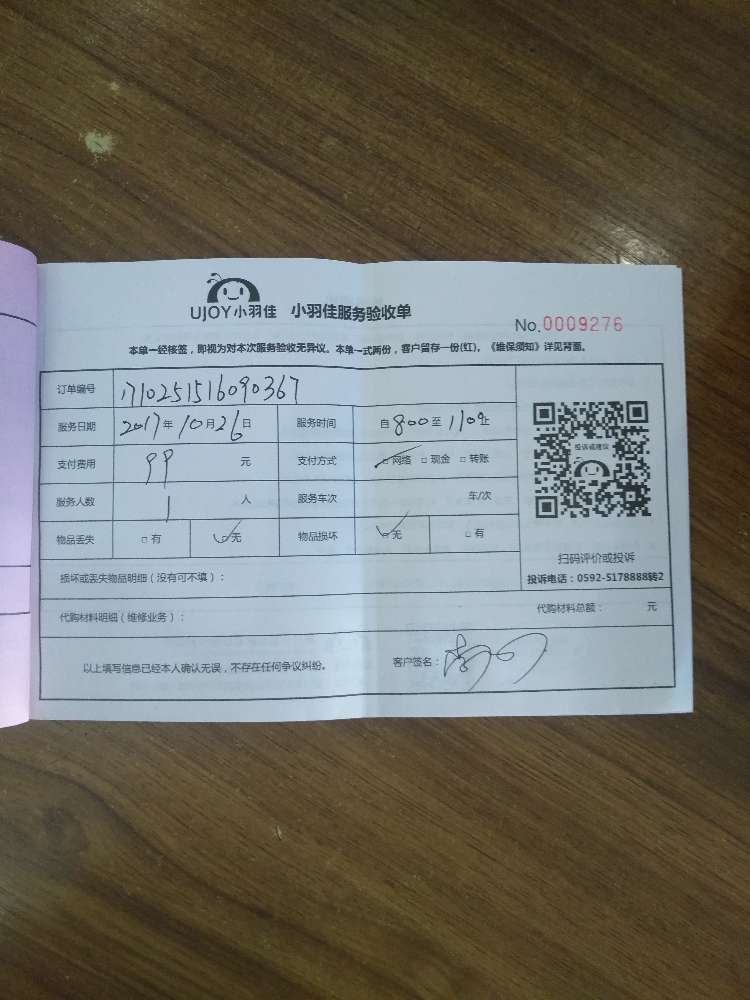 UJOY小羽佳 小羽佳服务验收单
No.0009276
本单一经核签，即视为对本次服务验收无异议。本单一式两份，客户留存一份(红)，《维保须知》详见背面。
订单编号 1710251516090367
服务日期 2017年10月26日 服务时间 自800至1100止
支付费用 99 元 支付方式 □网络 □现金 □转账
服务人数 1 人 服务车次 车/次
物品丢失 □有 □无 物品损坏 □无 □有
投诉或建议
扫码评价或投诉
投诉电话：0592-5178888转2
损坏或丢失物品明细（没有可不填）：
代购材料明细（维修业务）： 代购材料总额： 元
以上填写信息已经本人确认无误，不存在任何争议纠纷。 客户签名：